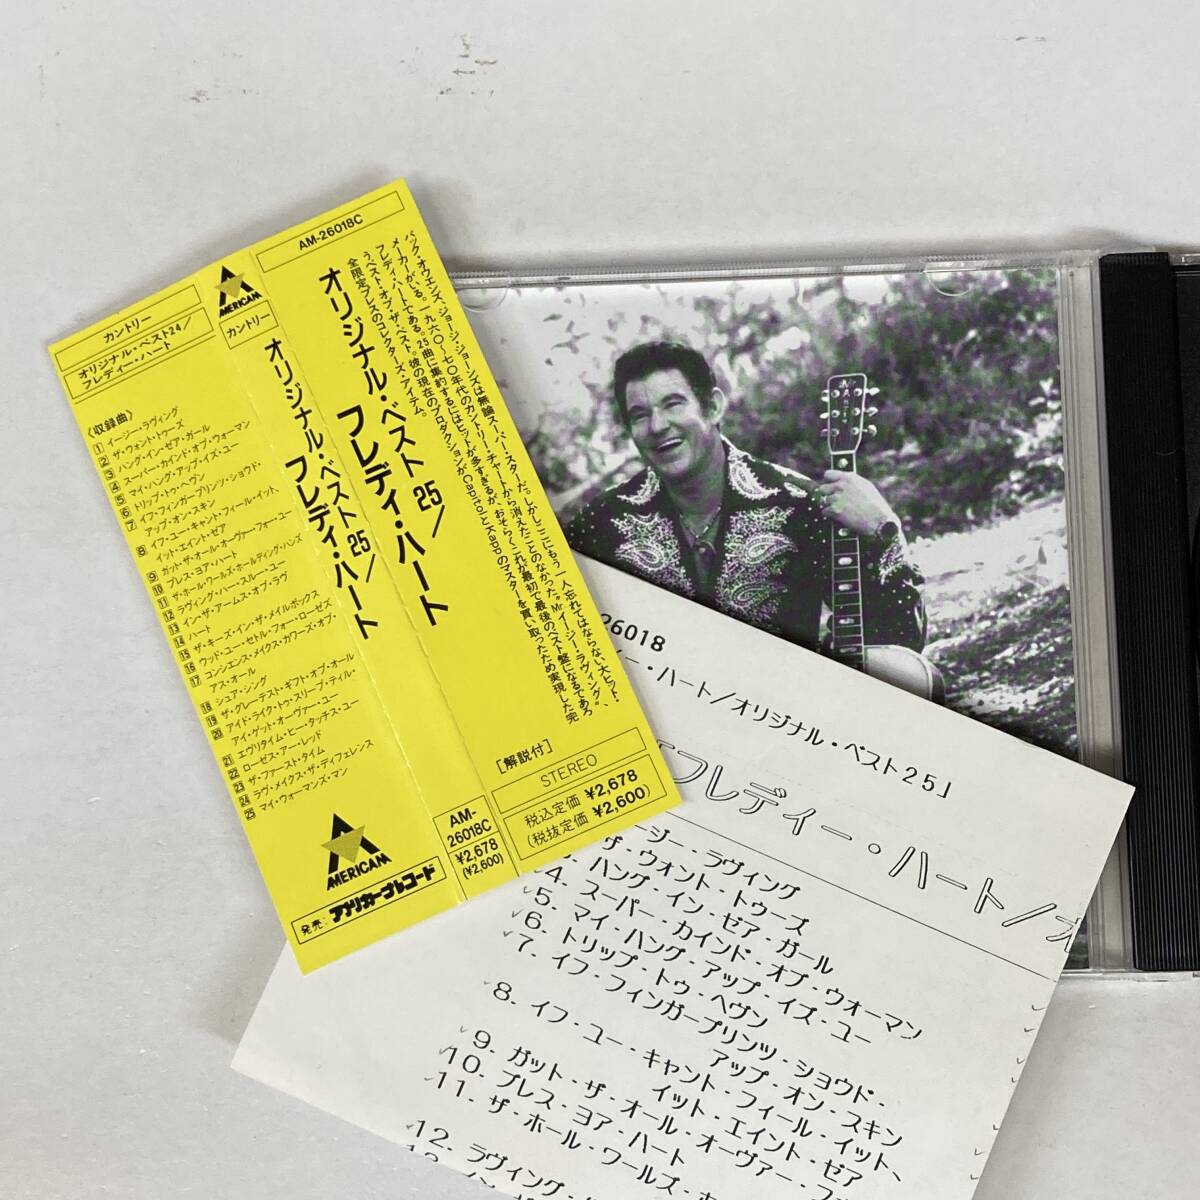 カントリー
オリジナル・ベスト24/
フレディー・ハート
《収録曲》
1 イージー・ラヴィング
2 ザ・ウォント・トゥーズ
3 ハング・イン・ゼア・ガール
4 スーパー・カインド・オブ・ウォーマン
5 マイ・ハング・アップ・イズ・ユー
6 トリップ・トゥ・ヘヴン
7 イフ・フィンガープリンツ・ショウド・
アップ・オン・スキン
8 イフ・ユー・キャント・フィール・イット、
イット・エイント・ゼア
9 ガット・ザ・オール・オーヴァー・フォー・ユー
10 プレス・ヨア・ハート
11 ザ・ホール・ワールズ・ホールディング・ハンズ
12 ラヴィング・ハー・スルー・ユー
13 イン・ザ・アームス・オブ・ラヴ
14 ハート
15 ザ・キーズ・イン・ザ・メイルボックス
16 ウッド・ユー・セトル・フォー・ローゼズ
17 コンシエンス・メイクス・カワーズ・オブ・
アス・オール
18 シュア・シング
19 ザ・グレーテスト・ギフト・オブ・オール
20 アイド・ライク・トゥ・スリープ・ティル・
アイ・ゲット・オーヴァー・ユー
21 エヴリタイム・ヒー・タッチス・ユー
22 ローゼス・アー・レッド
23 ザ・ファースト・タイム
24 ラヴ・メイクス・ザ・ディフェレンス
25 マイ・ウォーマンズ・マン
AMERICAM
発売: アメリカーナレコード
AMERICAM
カントリー
オリジナル・ベスト25/
フレディ・ハート
AM-
26018C
¥2,678
(¥2,600)
AM-26018C
オリジナル・ベスト25/
フレディ・ハート
バック・オウエンズ、ジョージ・ジョーンズは無論スーパー・スターだ。しかしここにもう一人忘れてはならない大ヒット・
メーカーがいる。一九六〇〜七〇年代のカントリー・チャートから消えたことのなかった“Mr.イージー・ラヴィング”、
フレディ・ハートである。25曲に集約するにはヒットが多すぎるが、おそらくこれが最初で最後のベスト盤になるであろ
うベスト・オブ・ザ・ベスト。彼の現在のプロダクションがCapitolとKappのマスターを買い取ったため実現した完
全限定プレスのコレクターズ・アイテム。
[解説付]
STEREO
税込定価 ¥2,678
(税抜定価 ¥2,600)
26018
ー・ハート/オリジナル・ベスト25」
「フレディー・ハート/オ
ージー・ラヴィング
ザ・ウォント・トゥーズ
ハング・イン・ゼア・ガール
4- スーパー・カインド・オブ・ウォーマン
5- マイ・ハング・アップ・イズ・ユー
6- トリップ・トゥ・ヘヴン
7- イフ・フィンガープリンツ・ショウド・
アップ・オン・スキン
8- イフ・ユー・キャント・フィール・イット、
イット・エイント・ゼア
9- ガット・ザ・オール・オーヴァー・フォ
10- プレス・ヨア・ハート
11- ザ・ホール・ワールズ・ホ
12- ラヴィング・ハー